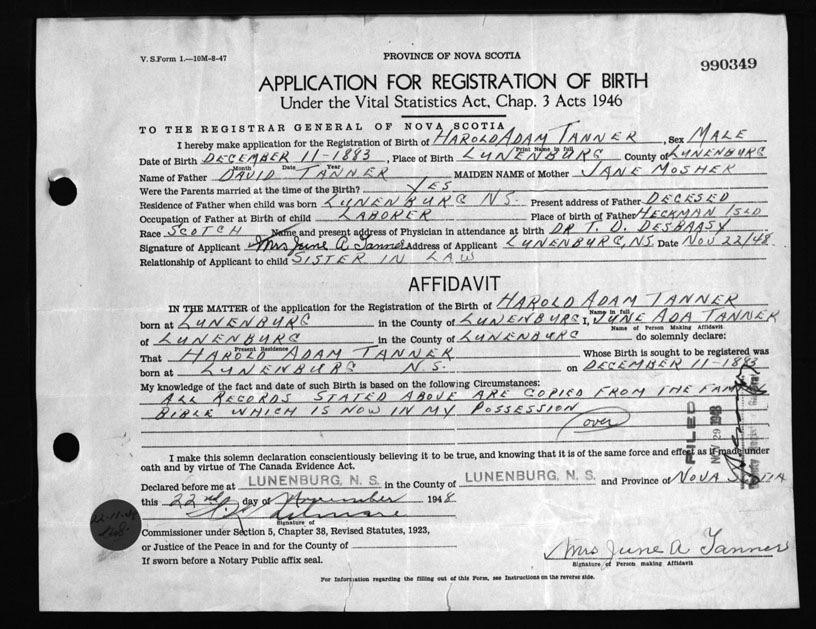 V. S. Form 1.—10M-8-47
PROVINCE OF NOVA SCOTIA
990349
APPLICATION FOR REGISTRATION OF BIRTH
Under the Vital Statistics Act, Chap. 3 Acts 1946
TO THE REGISTRAR GENERAL OF NOVA SCOTIA
I hereby make application for the Registration of Birth of HAROLD ADAM TANNER, Sex MALE
Print Name in full
Date of Birth DECEMBER 11-1883, Place of Birth LUNENBURG County of LUNENBURG
Month Date Year
Name of Father DAVID TANNER MAIDEN NAME of Mother JANE MOSHER
Were the Parents married at the time of the Birth? YES
Residence of Father when child was born LUNENBURG N.S. Present address of Father DECESED
Occupation of Father at Birth of child LABORER Place of birth of Father HECKMAN ISLD
Race SCOTCH Name and present address of Physician in attendance at birth DR T. D. DESBAASY
Signature of Applicant Mrs June A Tanner Address of Applicant LUNENBURG, N.S. Date NOV 22/48.
Relationship of Applicant to child SISTER IN LAW
AFFIDAVIT
IN THE MATTER of the application for the Registration of the Birth of HAROLD ADAM TANNER
Name in full
born at LUNENBURG in the County of LUNENBURG I, JUNE ADA TANNER
Name of Person Making Affidavit
of LUNENBURG in the County of LUNENBURG do solemnly declare:
Present Residence
That HAROLD ADAM TANNER Whose Birth is sought to be registered was
born at LUNENBURG N.S. on DECEMBER 11-1883
My knowledge of the fact and date of such Birth is based on the following Circumstances:
ALL RECORDS STATED ABOVE ARE COPIED FROM THE FAMILY
BIBLE WHICH IS NOW IN MY POSSESSION
(over)
FILED
NOV 29 1948
I make this solemn declaration conscientiously believing it to be true, and knowing that it is of the same force and effect as if made under
oath and by virtue of The Canada Evidence Act.
Declared before me at LUNENBURG, N. S. in the County of LUNENBURG, N. S. and Province of NOVA SCOTIA
this 22nd day of November 1948
Signature of
Commissioner under Section 5, Chapter 38, Revised Statutes, 1923,
or Justice of the Peace in and for the County of
If sworn before a Notary Public affix seal.
Mrs June A Tanner
Signature of Person making Affidavit
For Information regarding the filling out of this Form, see Instructions on the reverse side.